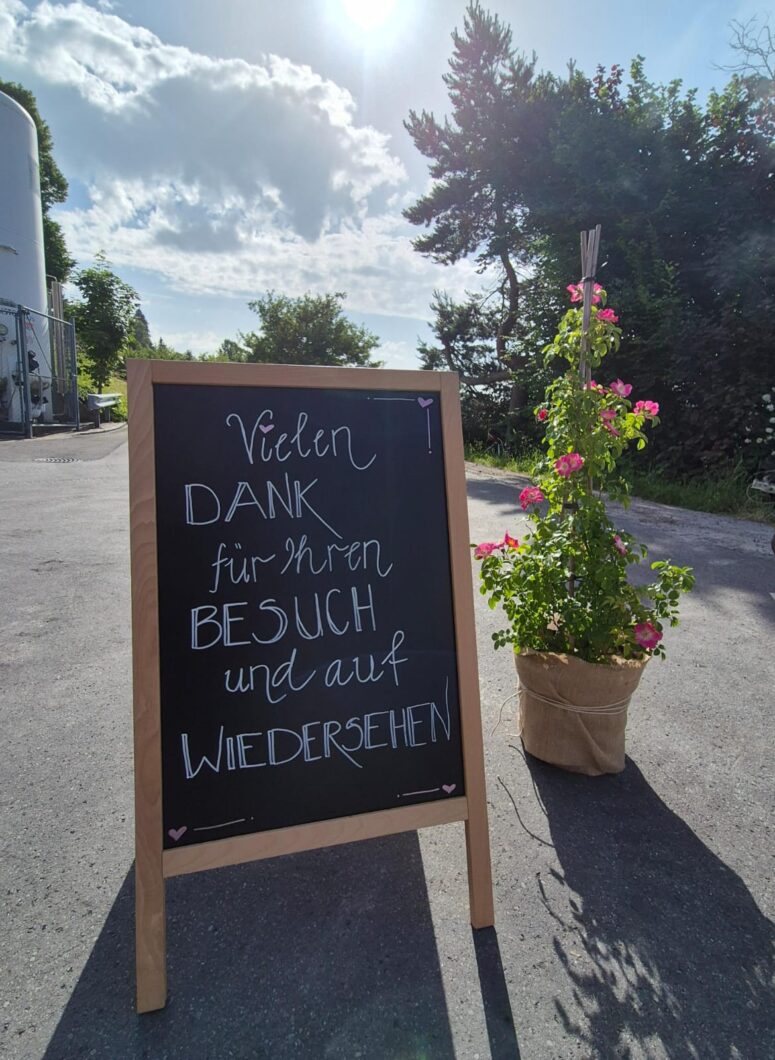 Vielen
DANK
für Ihren
BESUCH
und auf
WIEDERSEHEN